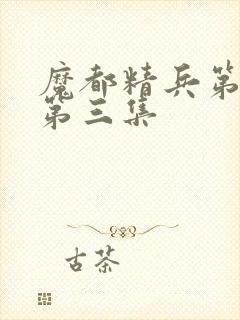 魔都精兵第
第三集
古茶